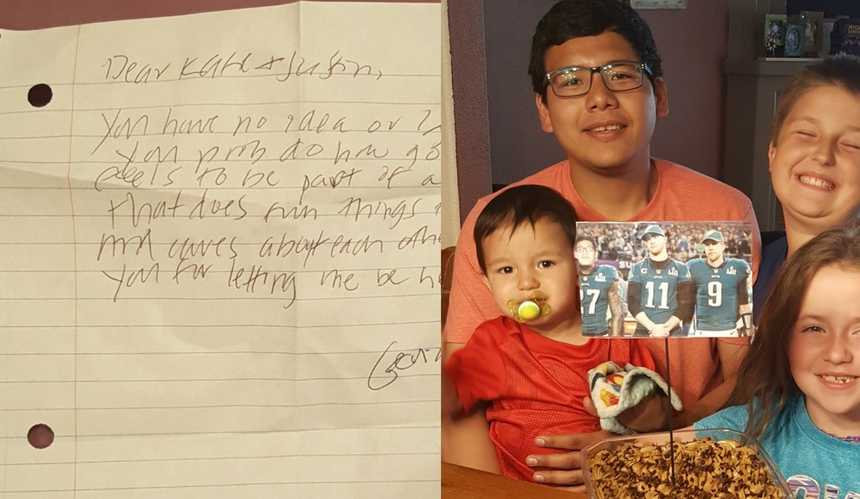 Dear Kate + Justin,
You have no idea or
you prob do how go
feels to be part of a
that does fun things
and cares about each othe
you for letting me be he
17 11 9